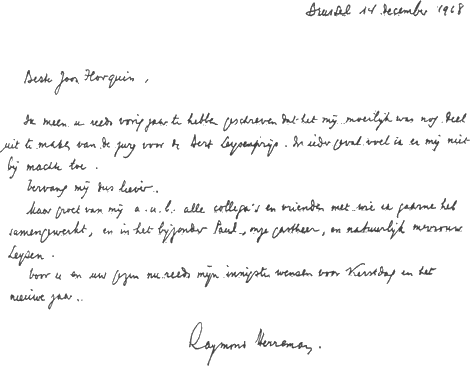 Brussel 14 december 1968
Beste Joos Florquin,
Ik meen u reeds vorig jaar te hebben geschreven dat het mij moeilijk was nog deel
uit te maken van de jury voor de Bert Leysenprijs. In ieder geval voel ik er mij niet
bij machte toe.
Vervang mij dus liever.
Maar groet van mij a.u.b. alle collega's en vrienden met wie ik gaarne heb
samengewerkt, en in het bijzonder Paul, onze gastheer, en natuurlijk mevrouw
Leysen.
Voor u en uw gezin nu reeds mijn innigste wensen voor Kerstdag en het
nieuwe jaar..
Raymond Herreman.